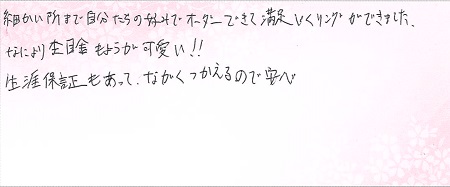 細かい所まで自分たちの好みでオーダーできて満足いくリングができました。
なにより木目金もようが可愛い!!
生涯保証もあって、ながくつかえるので安心